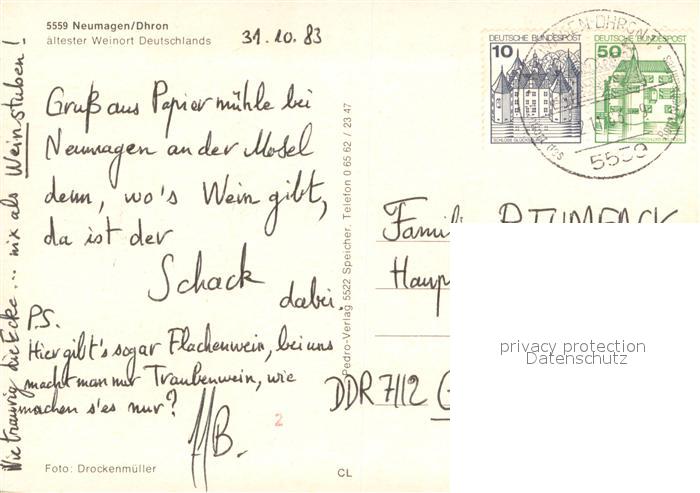 5559 Neumagen/Dhron
ältester Weinort Deutschlands
31.10.83
Gruß aus Papiermühle bei
Neumagen an der Mosel
denn, wo's Wein gibt,
da ist der
Schack
dabei.
P.S.
Hier gibt's sogar Flachenwein, bei uns
macht man nur Traubenwein, wie
machen s'es nur?
B.
Wie traurig die Ecke... nix als Weinstuben!
Foto: Drockenmüller
CL
2
Pedro-Verlag 5522 Speicher, Telefon 0 65 62 / 23 47
DEUTSCHE BUNDESPOST
10
SCHLOSS GLÜCKSBURG
DEUTSCHE BUNDESPOST
50
5559
Famili
Haup
DDR 7112
privacy protection
Datenschutz